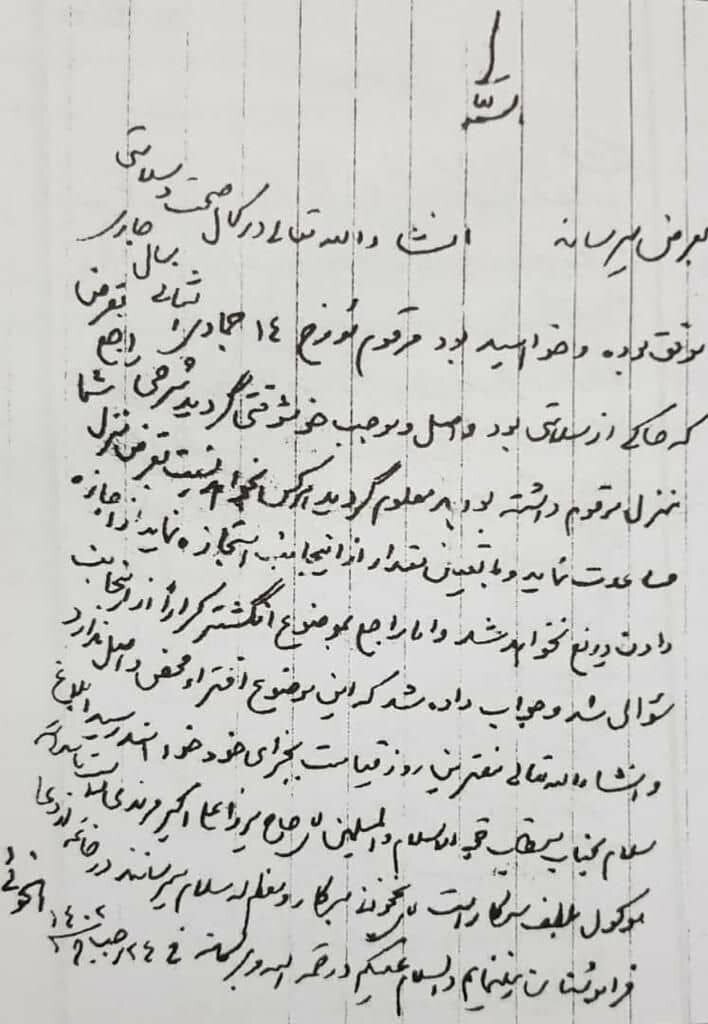 بسمه تعالی
بعرض میرساند انشاء الله تعالی در کمال صحت و سلامتی
موفق بوده و خواهید بود مرقوم مورخ ١٤ جمادی الثانی سال جاری
که حاکی از سلامتی بود واصل و موجب خوشوقتی گردید شرحی راجع بقرض
منزل مرقوم داشته بودید معلوم گردید هر کس بخواهد نسبت بقرض منزل شما
مساعدت نماید و با تعیین مقدار از اینجانب استجازه نماید از اجازه
دادن دریغ نخواهد شد و اما راجع بموضوع انگشتر کراراً از اینجانب
سؤال شد و جواب داده شد که این موضوع افتراء محض و اصل ندارد
و انشاء الله تعالی مفترین روز قیامت بجزای خود خواهند رسید ابلاغ
سلام بجناب مستطاب ثقة الاسلام والمسلمین آقای حاج میرزا علی اکبر مرندی
موکول بلطف سرکار است آقای سرکار و معظم له سلام میرسانند در خاتمه از دعا
فراموشتان نمینمایم والسلام علیکم ورحمة الله وبرکاته فی ٢٤ رجب ١٤٠٢
الخوئی